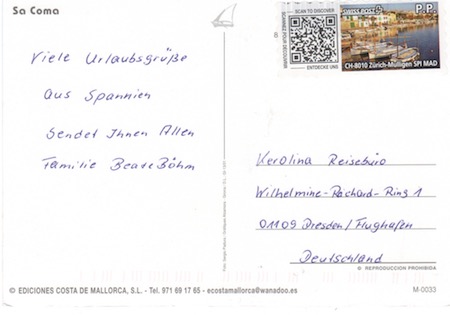 Sa Coma
Viele Urlaubsgrüße
aus Spannien
Sendet Ihnen Allen
Familie Beate Böhm
8
SCANNEZ POUR DÉCOUVRIR
ENTDECKE UNS
SWISS POST
P.P.
CH-8010 Zürich-Mülligen SPI MAD
Kerolina Reisebüro
Wilhelmine-Rachard-Ring 1
01109 Dresden/Flughafen
Deutschland
© REPRODUCCION PROHIBIDA
© EDICIONES COSTA DE MALLORCA, S.L. - Tel. 971 69 17 65 - ecostamallorca@wanadoo.es
M-0033